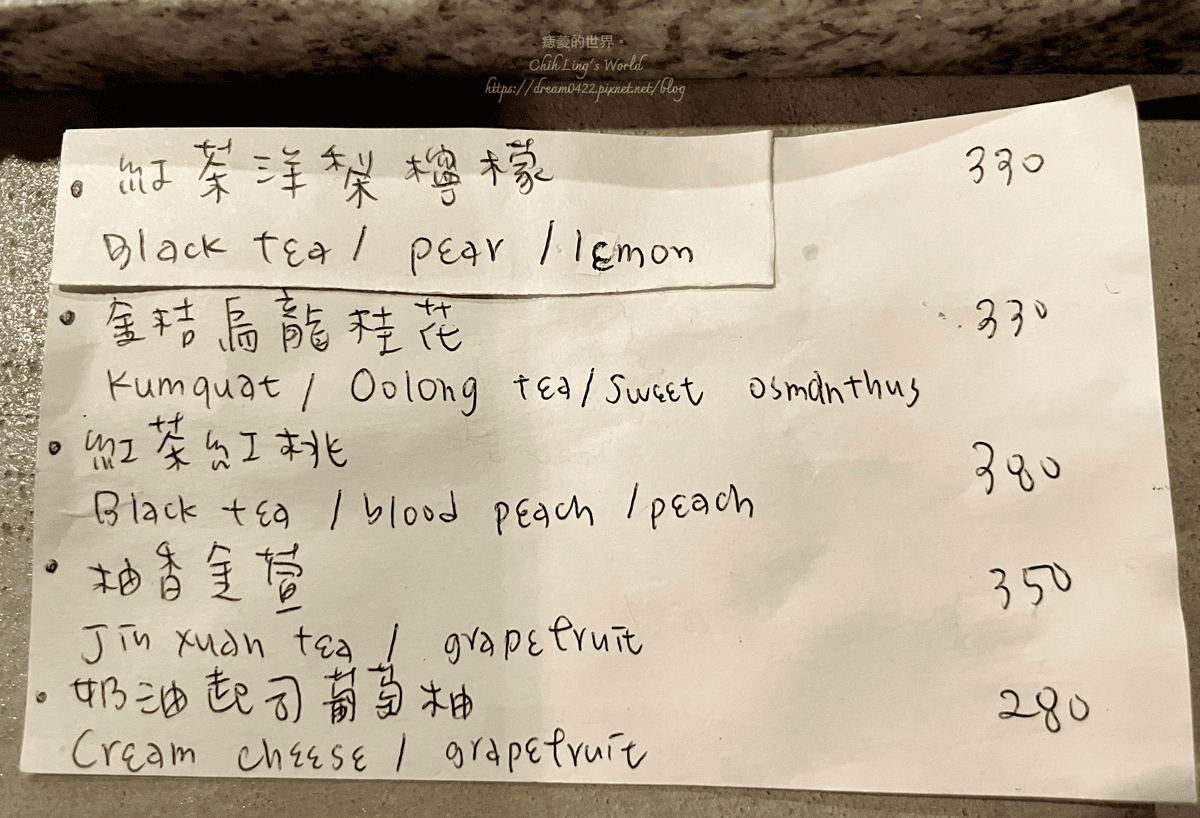 痞菱的世界。
ChihLing's World
https://dream0422.pixnet.net/blog
• 紅茶洋梨檸檬 330
Black tea / pear / lemon
• 金桔烏龍桂花 330
Kumquat / Oolong tea / Sweet osmanthus
• 紅茶紅桃 380
Black tea / blood peach / peach
• 柚香金萱 350
Jin xuan tea / grapefruit
• 奶油起司葡萄柚 280
Cream cheese / grapefruit